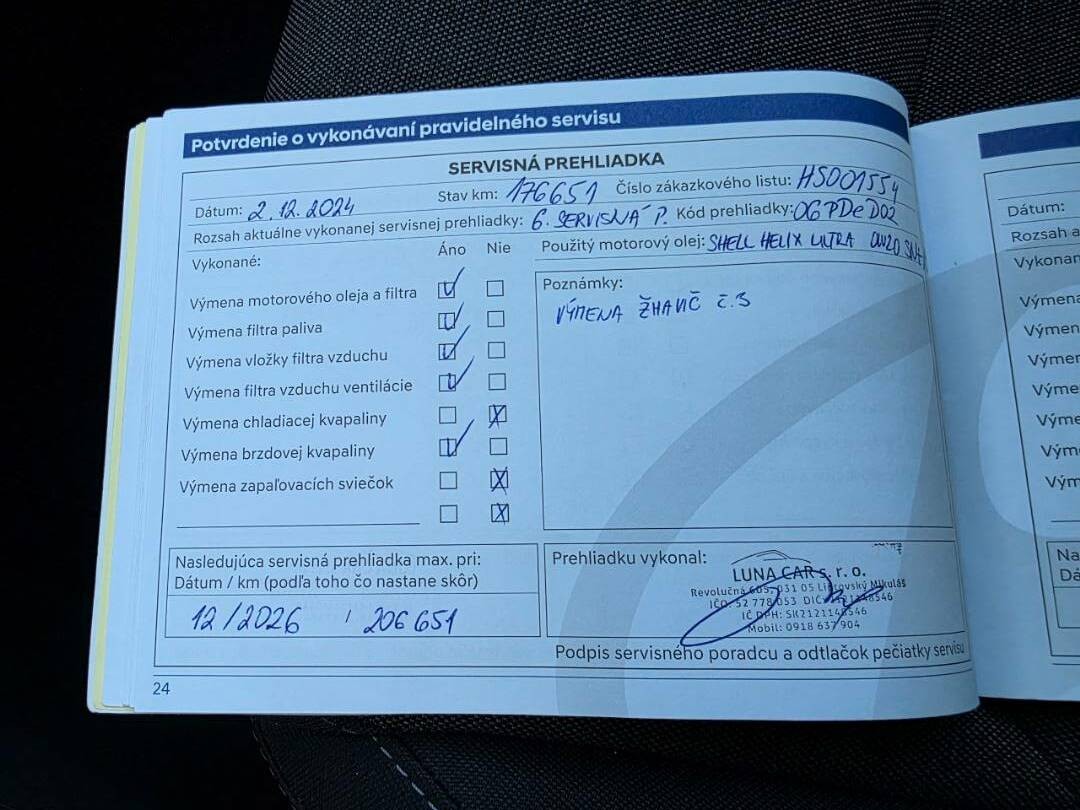 Potvrdenie o vykonávaní pravidelného servisu
SERVISNÁ PREHLIADKA
Dátum: 2.12.2024 Stav km: 176651 Číslo zákazkového listu: HS001554
Rozsah aktuálne vykonanej servisnej prehliadky: 6. SERVISNÁ P. Kód prehliadky: OGPDeD02
Vykonané: Áno Nie Použitý motorový olej: SHELL HELIX ULTRA 0W20
Výmena motorového oleja a filtra
Výmena filtra paliva
Výmena vložky filtra vzduchu
Výmena filtra vzduchu ventilácie
Výmena chladiacej kvapaliny
Výmena brzdovej kvapaliny
Výmena zapaľovacích sviečok
Poznámky:
VÝMENA ŽHAVIČ Č.3
Nasledujúca servisná prehliadka max. pri:
Dátum / km (podľa toho čo nastane skôr)
12/2026 / 206651
Prehliadku vykonal:
LUNA CAR s. r. o.
Revolučná 605, 031 05 Liptovský Mikuláš
IČO: 52 778 053 DIČ:
IČ DPH:
Mobil: 0918 637 904
Podpis servisného poradcu a odtlačok pečiatky servisu
24
Dátum:
Rozsah a
Vykonan
Výmena
Výmen
Výmen
Výme
Výme
Vým
Vým
Na
Dá